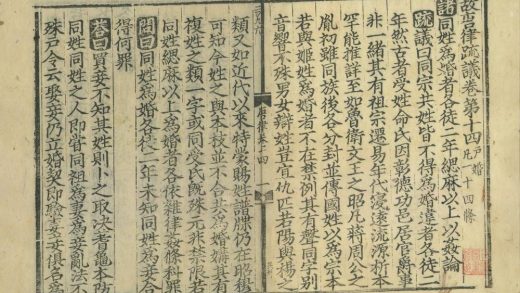 故唐律疏議卷第十四 戶婚 凡一十四條
諸同姓為婚者各徒二年緦麻以上以姦論
疏議曰同宗共姓皆不得為婚違者各徒二
年然古者受姓命氏因彰德功邑居官爵事
非一緒其有祖宗遷易年代寖遠流源析本
罕能推詳至如魯衛文王之昭凡蔣周公之
胤初雖同族後各分封並傳國姓以為宗本
若與姬姓為婚者不在禁例其有聲同字別
音響不殊男女辯姓豈宜仇匹若陽與楊之
唐律卷十四
類又如近代以來特蒙賜姓譜牒仍在昭穆
可知今姓之與本枝並不合共為婚媾其有
複姓之類一字或同受氏既殊元非禁限若
同姓緦麻以上為婚者各依雜律姦條科罪
問曰同姓為婚各徒二年未知同姓為妾合
得何罪
答曰買妾不知其姓則卜之取決蓍龜本防
同姓同姓之人即嘗同祖為妻為妾亂法不
殊戶令云娶妾仍立婚契即驗妻妾俱名為